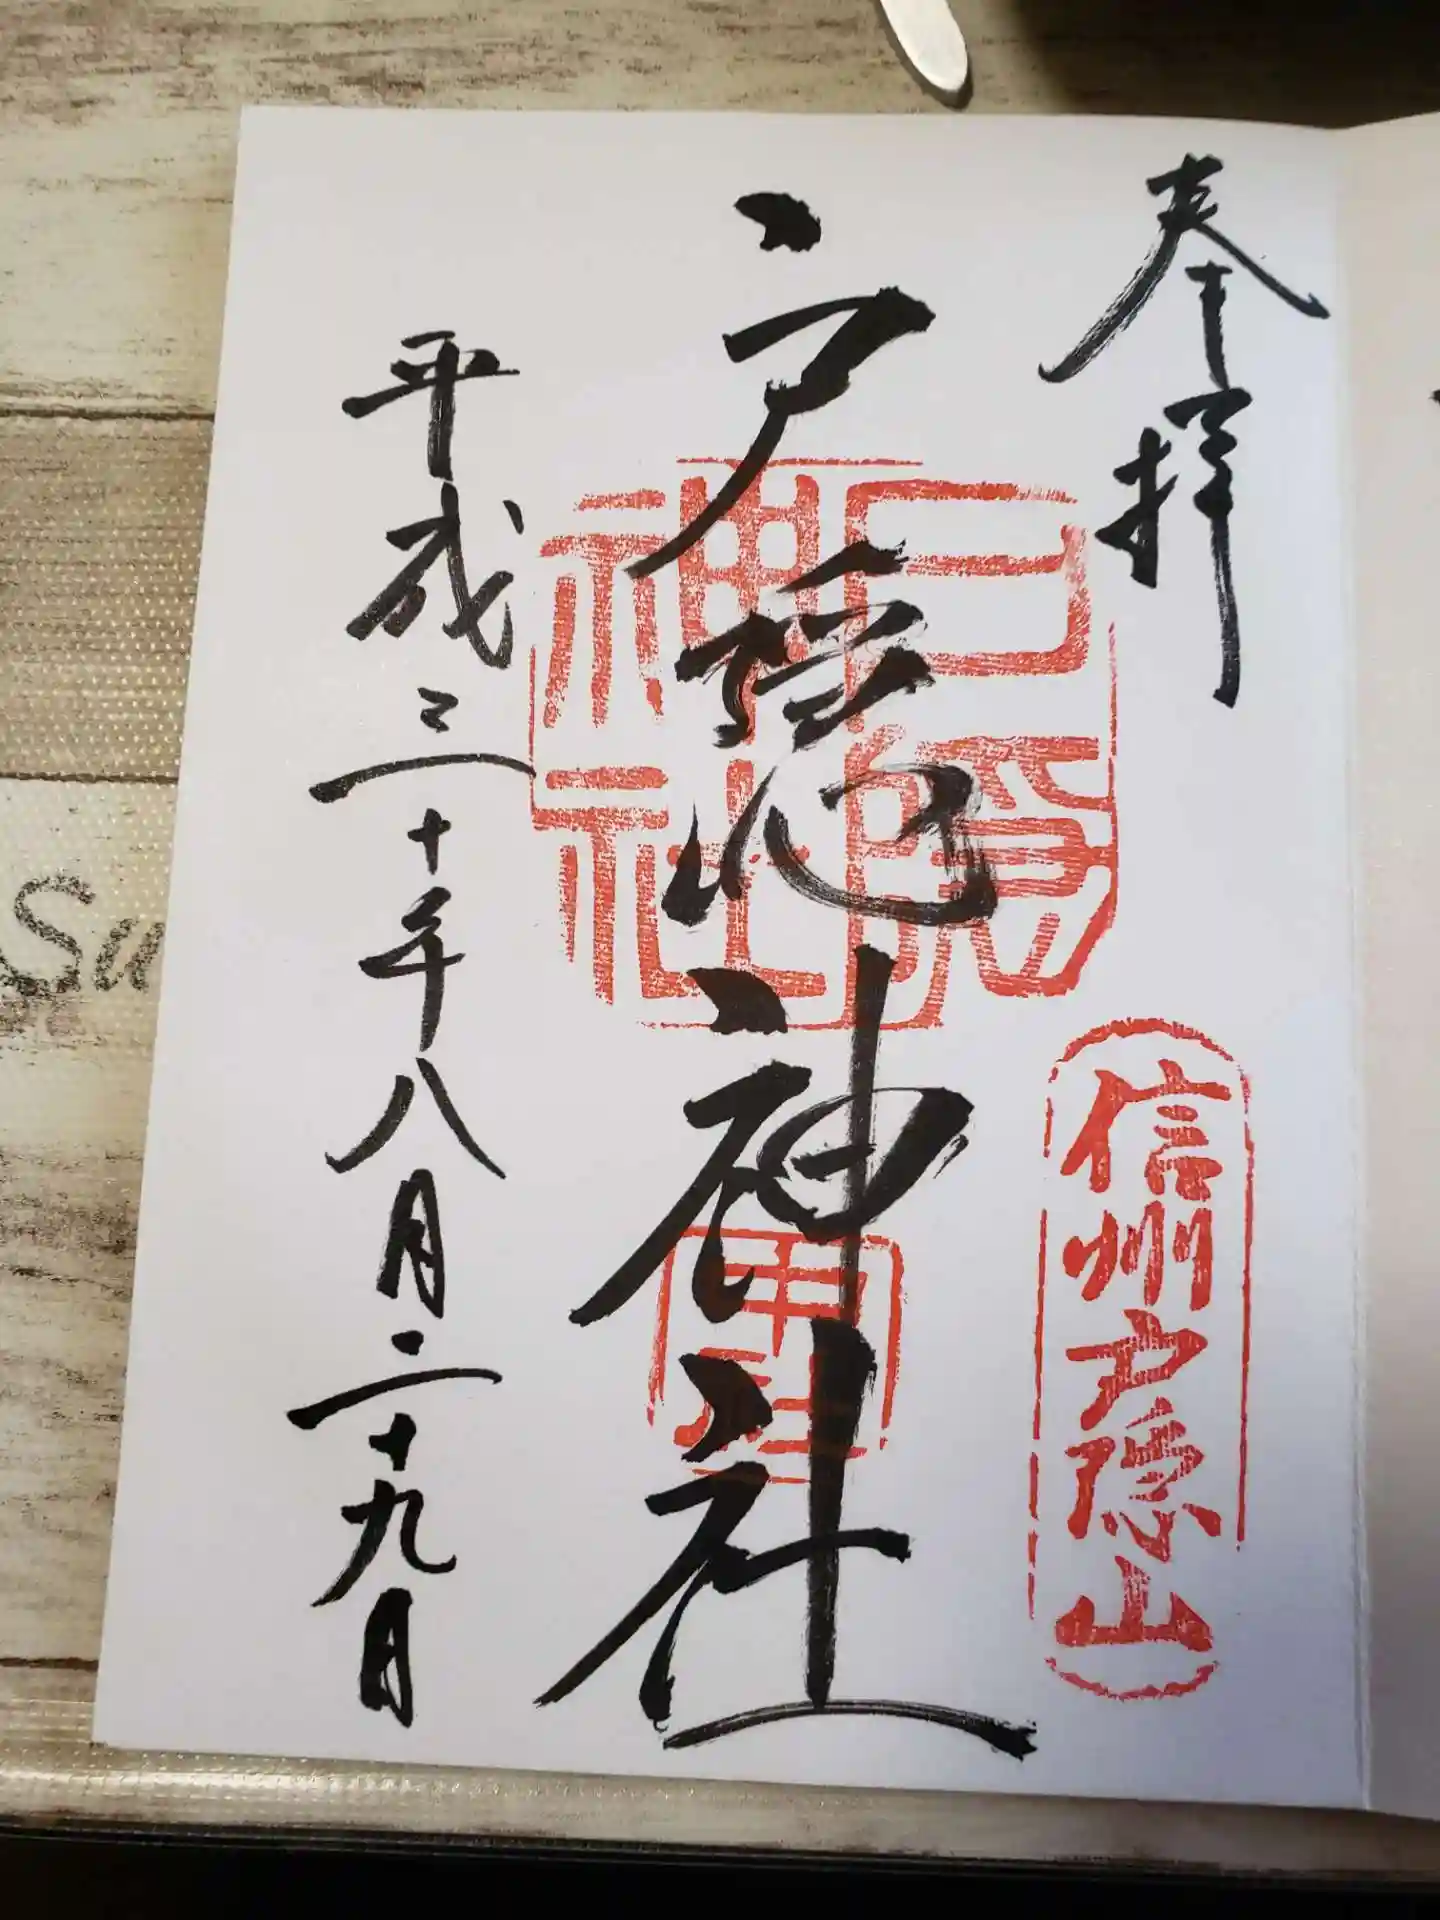 奉拝
信州戸隠山
戸隠神社
戸隠
神社
中社
平成三十年八月二十九日
Su